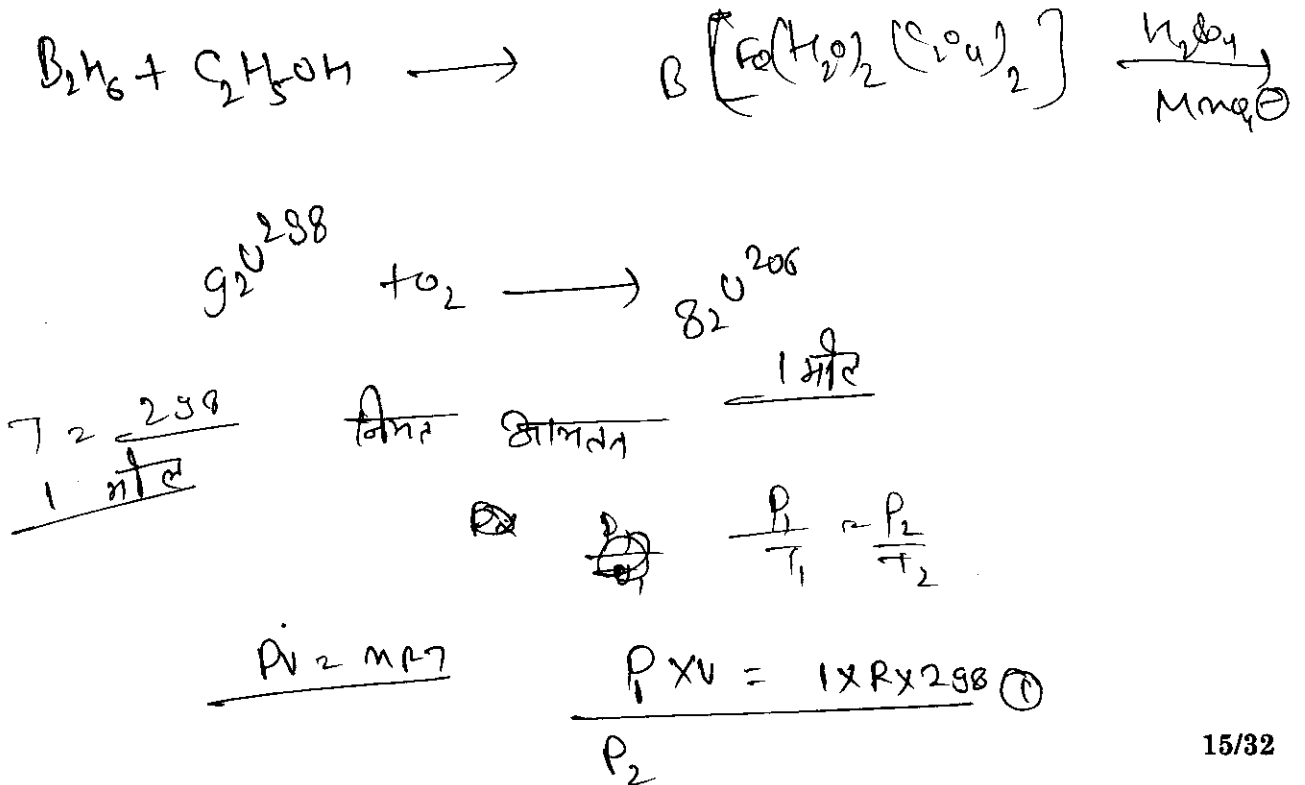 B₂H₆ + C₂H₅OH ⟶ B [Fe(H₂O)₂ (C₂O₄)₂] H₂SO₄ ⟶ MnO₄⊖
₉₂U²³⁸ + O₂ ⟶ ₈₂U²⁰⁶
1 मोल
T = 298 नियत आयतन
1 मोल
P₁/T₁ = P₂/T₂
PV = nRT P₁ × V = 1 × R × 298 ①
P₂
15/32